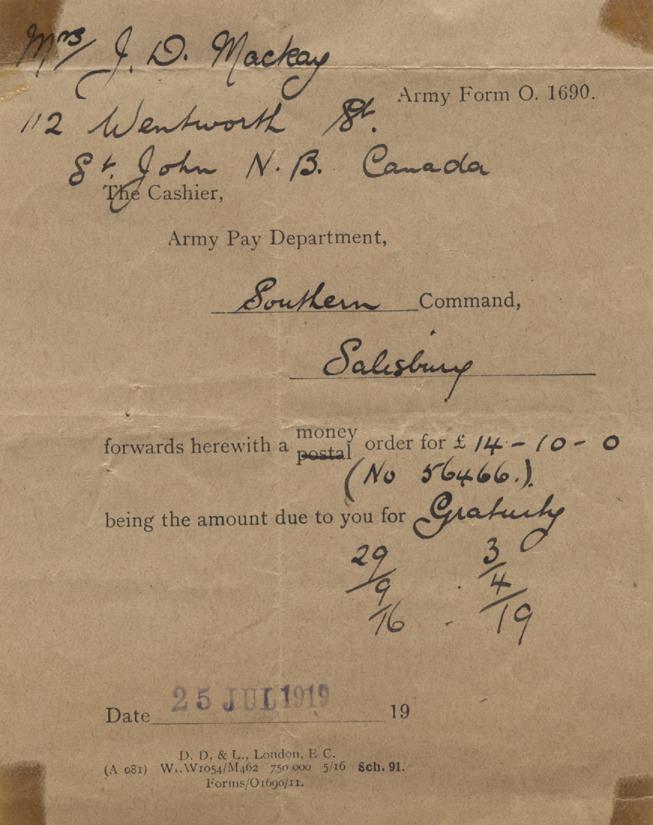 Mrs/ J. D. Mackay
Army Form O. 1690.
112 Wentworth St.
St. John N.B. Canada
The Cashier,
Army Pay Department,
Southern Command,
Salisbury
forwards herewith a money postal order for £ 14-10-0
(No 56466.).
being the amount due to you for Gratuity
29/9/16 - 3/4/19
Date 25 JUL 1919 19
D. D. & L., London, E C.
(A 081) Wt.W1054/M462 750 000 5/16 Sch. 91.
Forms/O1690/11.